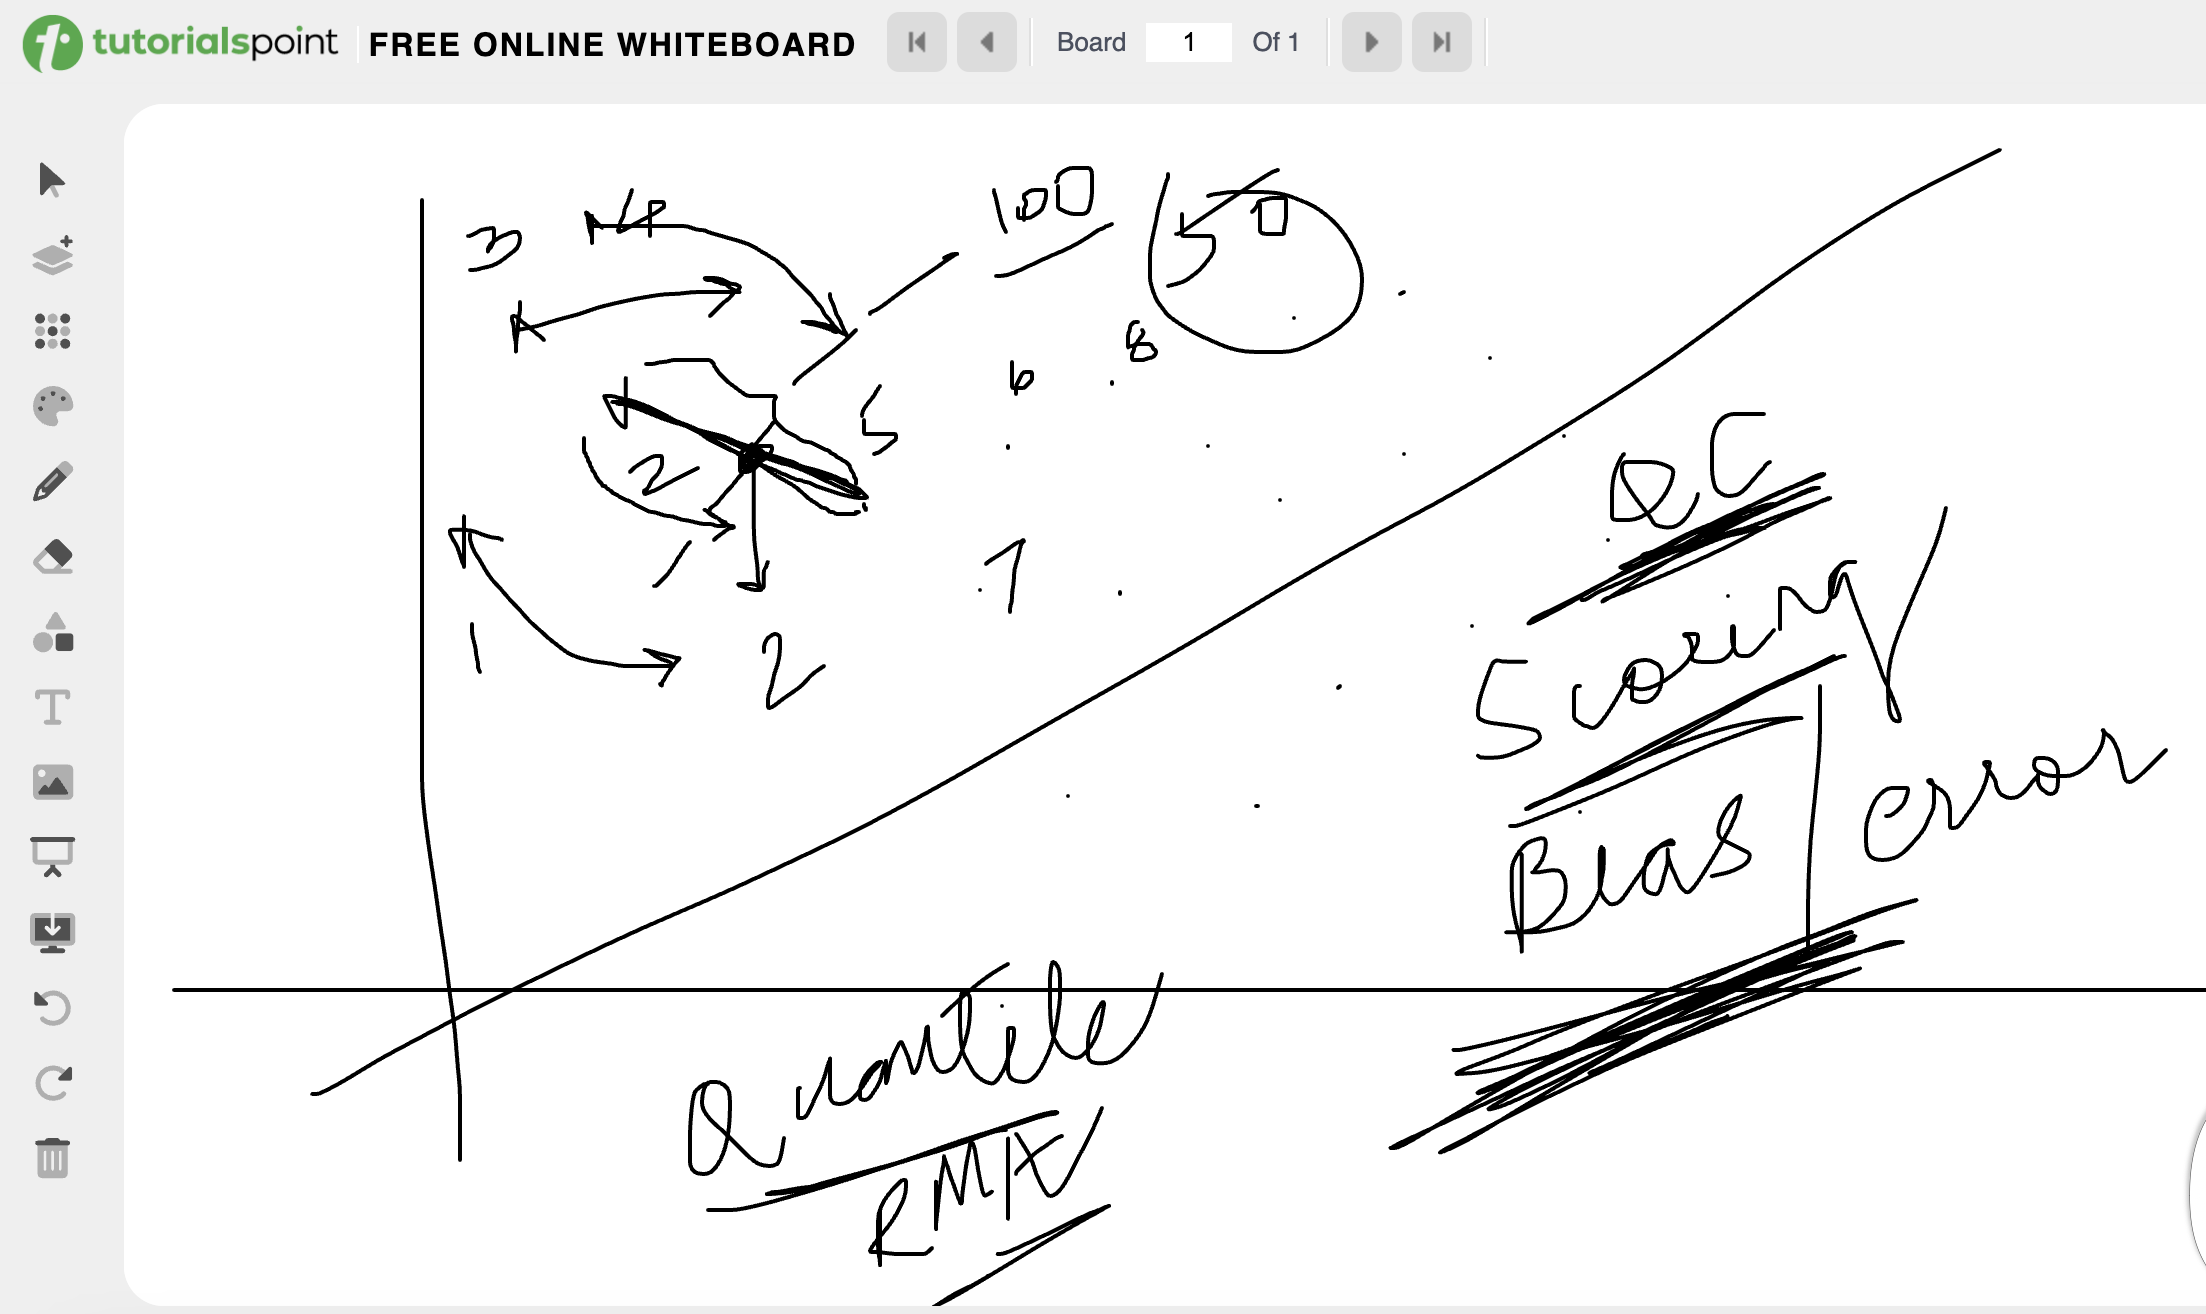 tutorialspoint FREE ONLINE WHITEBOARD Board 1 Of 1
3 4 100 50
8
6
5
2
7
1 2
QC
Scoring
Bias error
Quantile
RMA